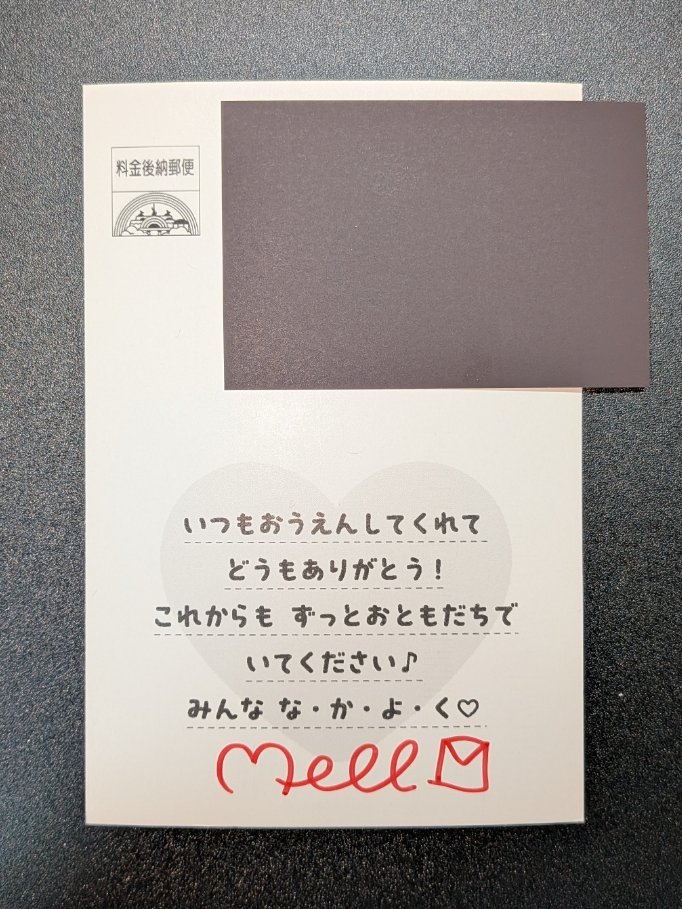 料金後納郵便
いつもおうえんしてくれて
どうもありがとう！
これからも ずっとおともだちで
いてください♪
みんな な・か・よ・く♡
Mell